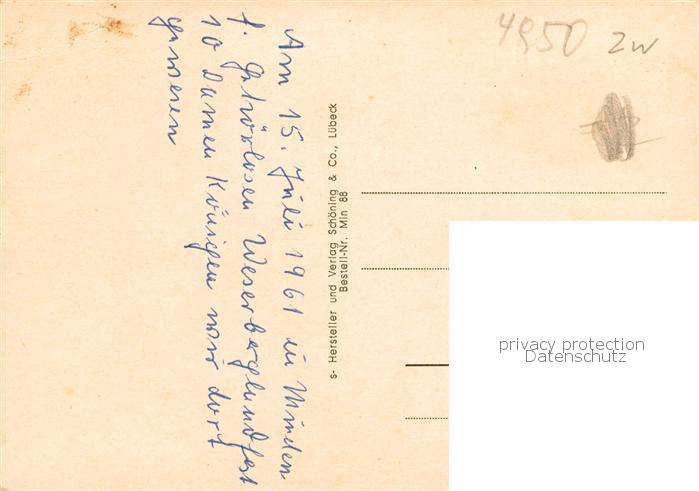 4950 ZW
Am 15. Juli 1961 in Minden
f. Gehörlosen Weserberglandfest
10 Damen Königen wir dort
gewesen
s- Hersteller und Verlag Schöning & Co., Lübeck
Bestell-Nr. Min 88
privacy protection
Datenschutz